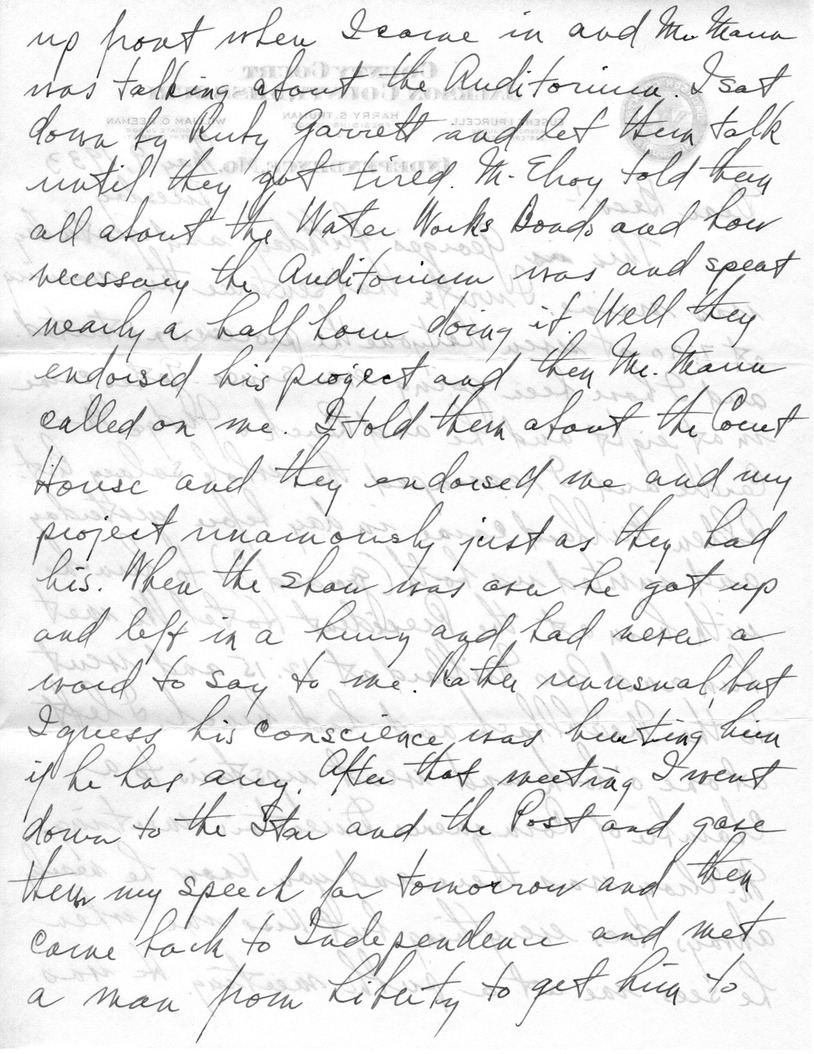 up front when I came in and Mr. Mann
was talking about the Auditorium. I sat
down by Ruby Garrett and let them talk
until they got tired. M. Elroy told them
all about the Water Works Bonds and how
necessary the Auditorium was and spent
nearly a half hour doing it. Well they
endorsed his project and then Mr. Mann
called on me. I told them about the Court
House and they endorsed me and my
project unamously just as they had
his. When the show was over he got up
and left in a hurry and had never a
word to say to me. Rather unusual, but
I guess his conscience was hurting him
if he has any. After that meeting I went
down to the Star and the Post and gave
them my speech for tomorrow and then
came back to Independence and met
a man from Liberty to get him to